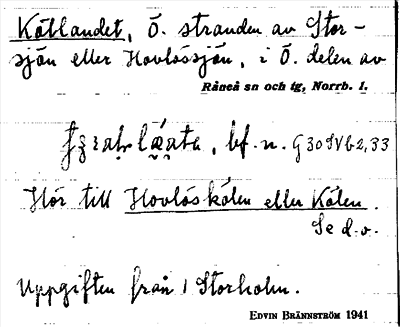 Kätlandet, Ö. stranden av Stor-
sjön eller Hovlössjön, i Ö. delen av
Råneå sn och tg, Norrb. l.
, bf. n. G30SVb2,33
Hör till Hovlöskölen eller Kölen.
Se d. o.
Uppgiften från 1 Storholm.
EDVIN BRÄNNSTRÖM 1941